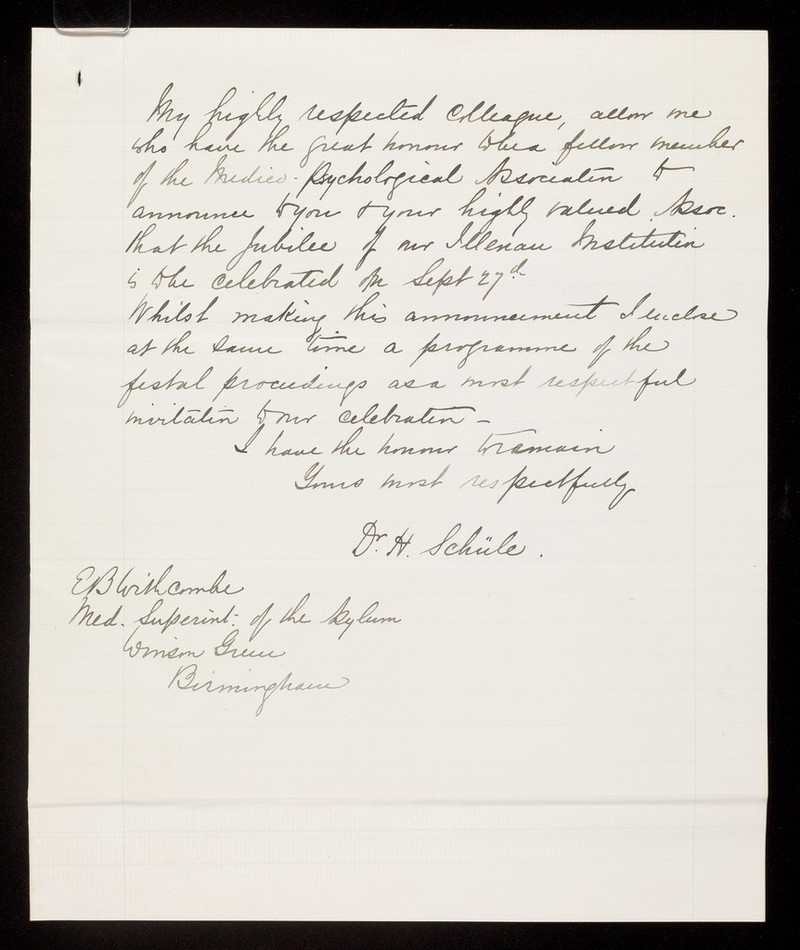 My highly respected Colleague, allow me
who have the great honour to be a fellow member
of the Medico-Psychological Association to
announce to you & your highly valued Assoc.
that the Jubilee of our Illenau Institution
is to be celebrated on Sept 27th
Whilst making this announcement I enclose
at the same time a programme of the
festal proceedings as a most respectful
invitation to our celebration -
I have the honour to remain
Yours most respectfully
Dr. H. Schüle.
E B Whitcombe
Med. Superint: of the Asylum
Winson Green
Birmingham